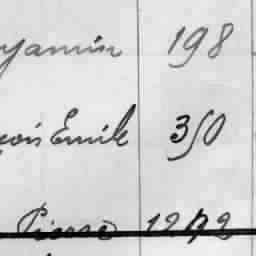 yamin 198
çois Emile 350
Pierre 1272